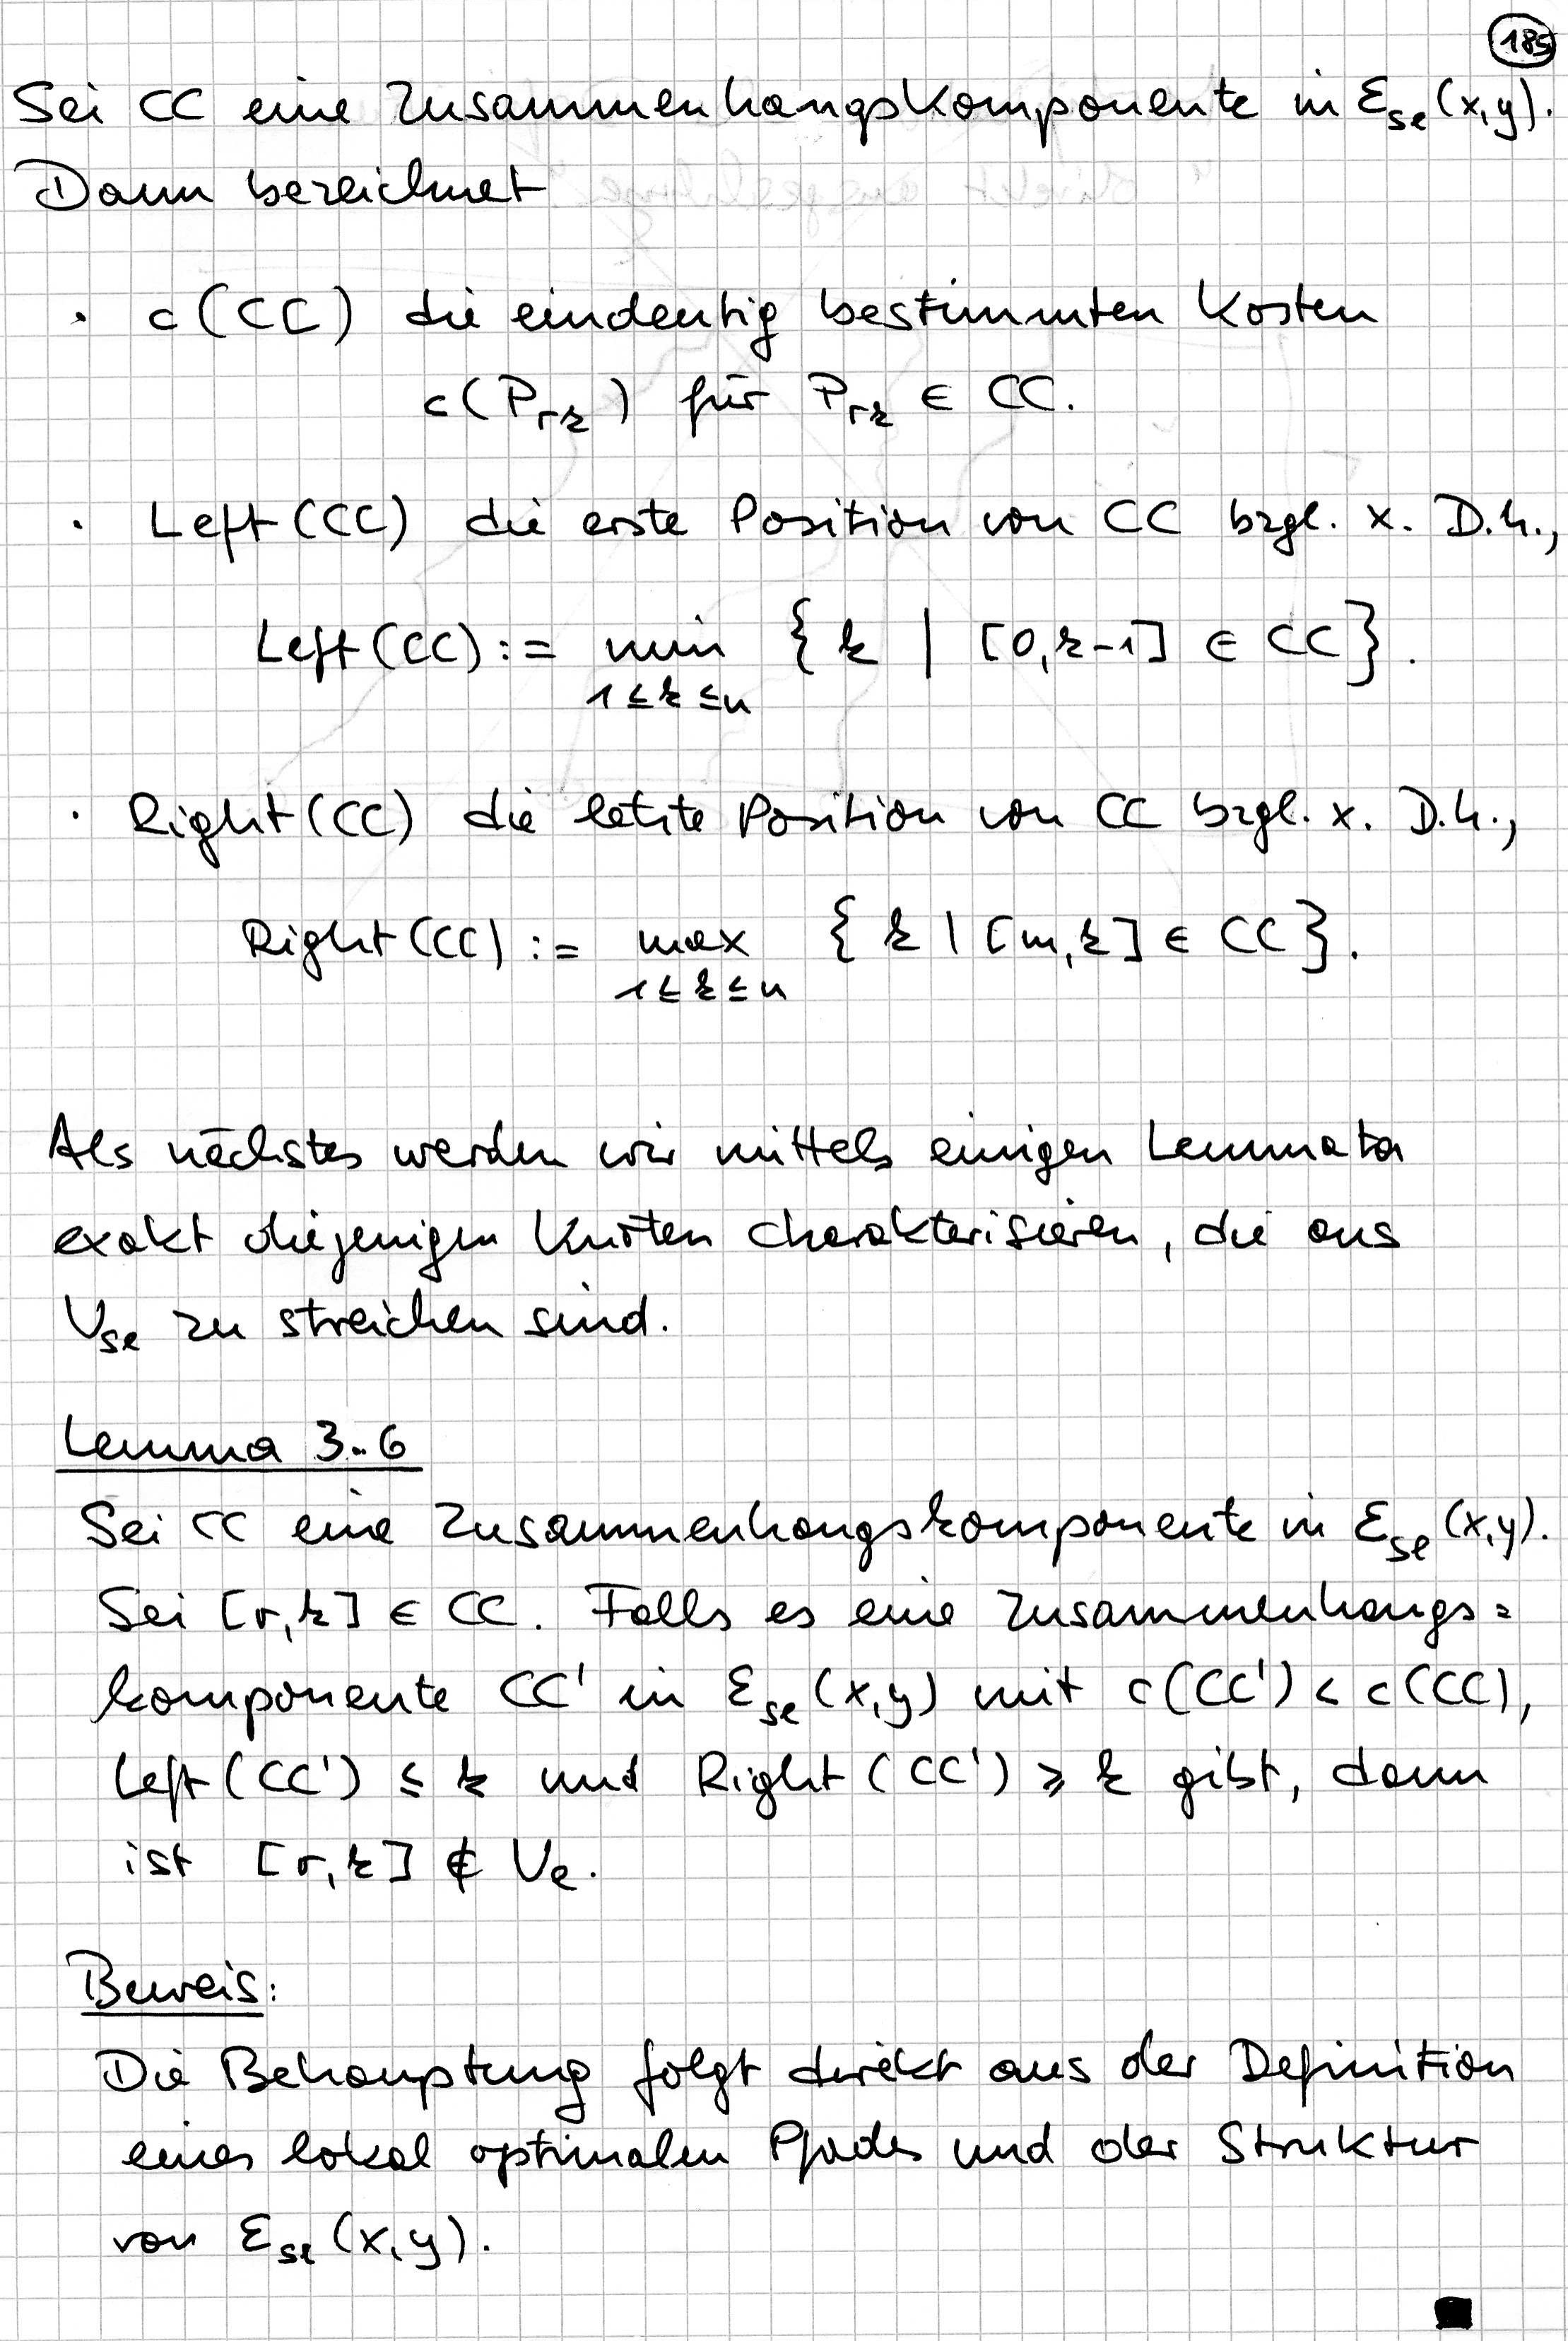 185
Sei CC eine Zusammenhangskomponente in Ɛ_se(x,y).
Dann bezeichnet
· c(CC) die eindeutig bestimmten Kosten
c(P_rk) für P_rk ∈ CC.
· Left(CC) die erste Position von CC bzgl. x. D.h.,
Left(CC) := min {k | [0,k-1] ∈ CC}.
1≤k≤n
· Right(CC) die letzte Position von CC bzgl. x. D.h.,
Right(CC) := max {k | [m,k] ∈ CC}.
1≤k≤n
Als nächstes werden wir mittels einigen Lemmata
exakt diejenigen Knoten charakterisieren, die aus
V_se zu streichen sind.
Lemma 3.6
Sei CC eine Zusammenhangskomponente in Ɛ_se(x,y).
Sei [r,k] ∈ CC. Falls es eine Zusammenhangs=
komponente CC' in Ɛ_se(x,y) mit c(CC') < c(CC),
Left(CC') ≤ k und Right(CC') ≥ k gibt, dann
ist [r,k] ∉ V_e.
Beweis:
Die Behauptung folgt direkt aus der Definition
eines lokal optimalen Pfades und der Struktur
von Ɛ_se(x,y).